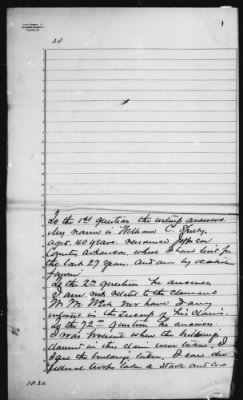 20
To the 1st question the witness answers
My name is William C.
aged 40 years. residence Jefferson
County Arkansas, where I have lived for
the last 27 years. and am by occupation
farmer
To the 2nd question he answers
I am not related to the claimant
nor have I any
interest in the success of his claim.
To the 72nd question he answers.
I was present when the
claimed in this claim were taken. I
saw the buildings taken, I saw the
Federal troops take a